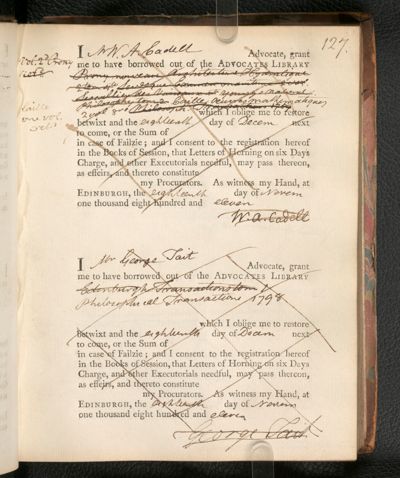 127.
I Mr W. A. Cadell Advocate, grant
me to have borrowed out of the ADVOCATES LIBRARY
Prony nouveau Architecture Hydraulique
Philosophy
which I oblige me to restore
betwixt and the eighteenth day of Decem next
to come, or the Sum of
in case of Failzie; and I consent to the registration hereof
in the Books of Session, that Letters of Horning on six Days
Charge, and other Executorials needful, may pass thereon,
as effeirs, and thereto constitute
my Procurators. As witness my Hand, at
EDINBURGH, the eighteenth day of Novem
one thousand eight hundred and eleven
W. A. Cadell
I Mr George Tait Advocate, grant
me to have borrowed out of the ADVOCATES LIBRARY
Edinburgh Transactions tom
Philosophical Transactions 1798
which I oblige me to restore
betwixt and the eighteenth day of Decem next
to come, or the Sum of
in case of Failzie; and I consent to the registration hereof
in the Books of Session, that Letters of Horning on six Days
Charge, and other Executorials needful, may pass thereon,
as effeirs, and thereto constitute
my Procurators. As witness my Hand, at
EDINBURGH, the eighteenth day of Novem
one thousand eight hundred and eleven
George Tait